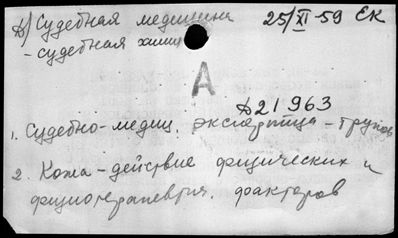 Д) Судебная медицина 25/XI-59 ЕК
- судебная химия
А
Д21963
1. Судебно-медиц. экспертиза - трупов
2. Кожа - действие физических и
физиотерапевтич. факторов